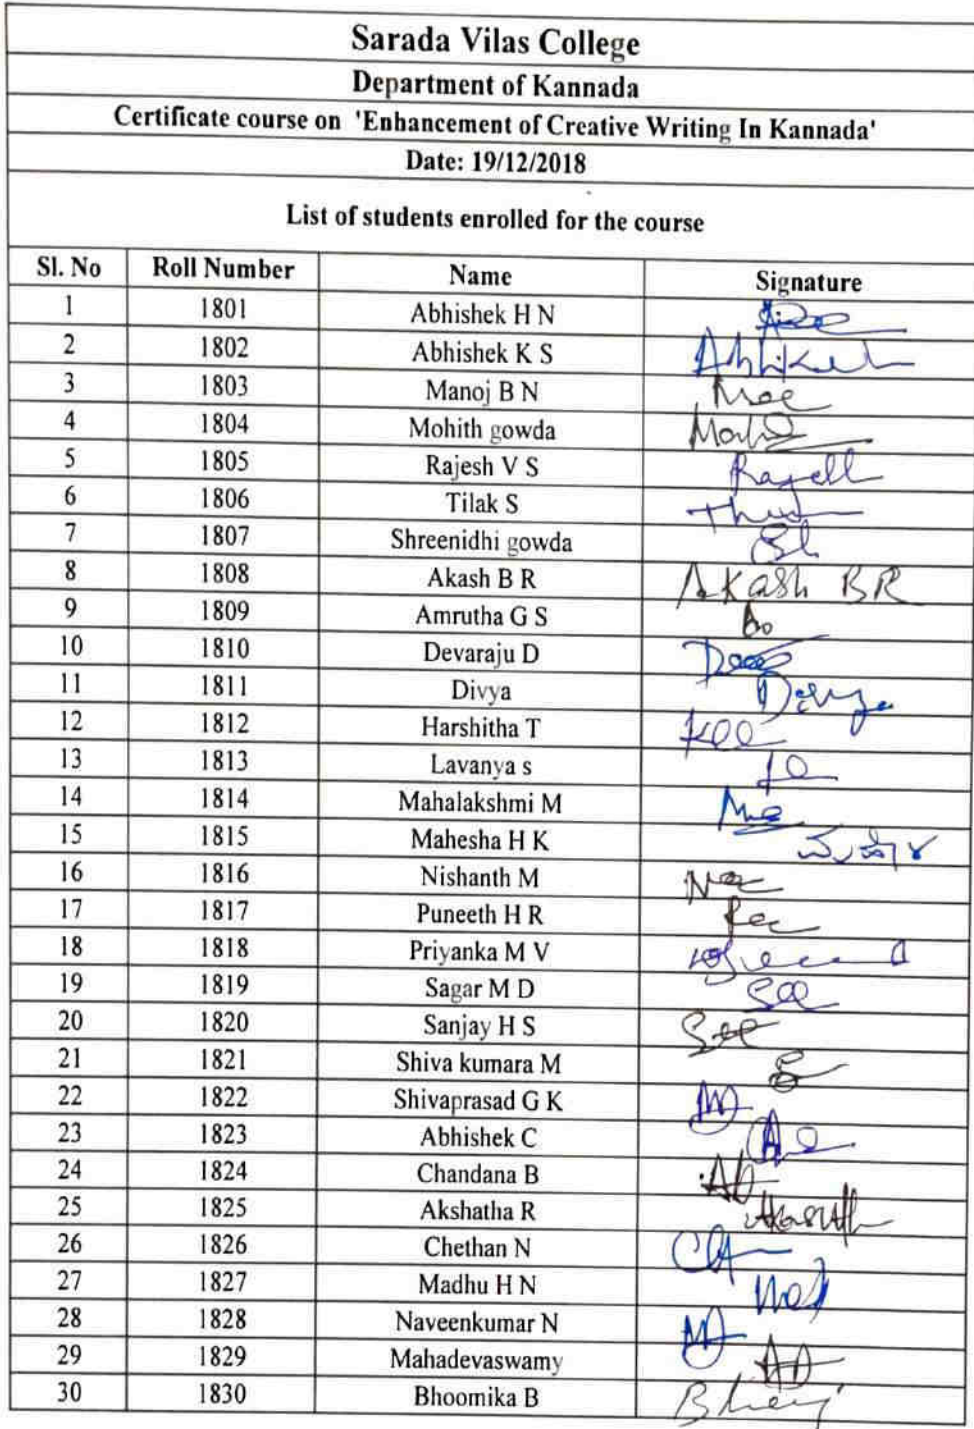 Sarada Vilas College
Department of Kannada
Certificate course on 'Enhancement of Creative Writing In Kannada'
Date: 19/12/2018
List of students enrolled for the course
Sl. No Roll Number Name Signature
1 1801 Abhishek H N
2 1802 Abhishek K S
3 1803 Manoj B N
4 1804 Mohith gowda
5 1805 Rajesh V S
6 1806 Tilak S
7 1807 Shreenidhi gowda
8 1808 Akash B R Akash BR
9 1809 Amrutha G S
10 1810 Devaraju D
11 1811 Divya
12 1812 Harshitha T
13 1813 Lavanya s
14 1814 Mahalakshmi M
15 1815 Mahesha H K
16 1816 Nishanth M
17 1817 Puneeth H R
18 1818 Priyanka M V
19 1819 Sagar M D
20 1820 Sanjay H S
21 1821 Shiva kumara M
22 1822 Shivaprasad G K
23 1823 Abhishek C
24 1824 Chandana B
25 1825 Akshatha R
26 1826 Chethan N
27 1827 Madhu H N
28 1828 Naveenkumar N
29 1829 Mahadevaswamy
30 1830 Bhoomika B